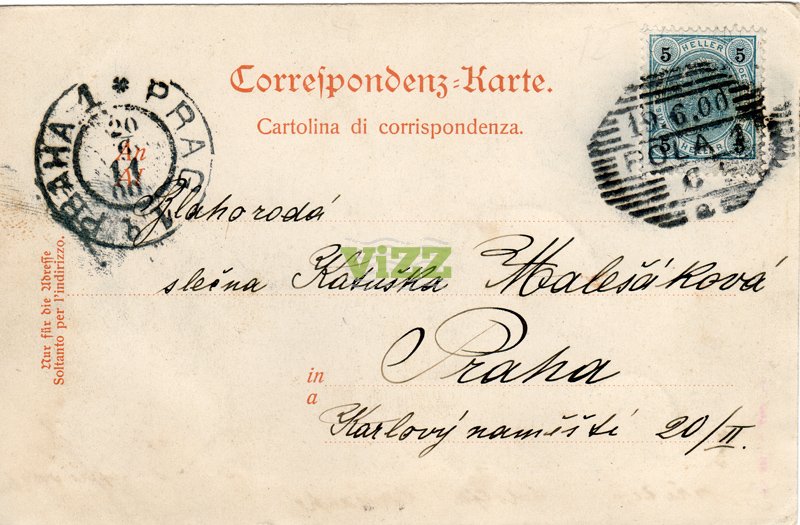 Correspondenz-Karte.
Cartolina di corrispondenza.
5 HELLER 5
5 HELLER 5
19.6.00
POLA 1
PRAHA 1 * PRAG 1
20
6
11
00
An
Al
Blahorodá
slečna Katuška Malešáková
ViZZ
Praha
in
a
Karlový naměstí 20/II.
Nur für die Adresse
Soltanto per l'indirizzo.